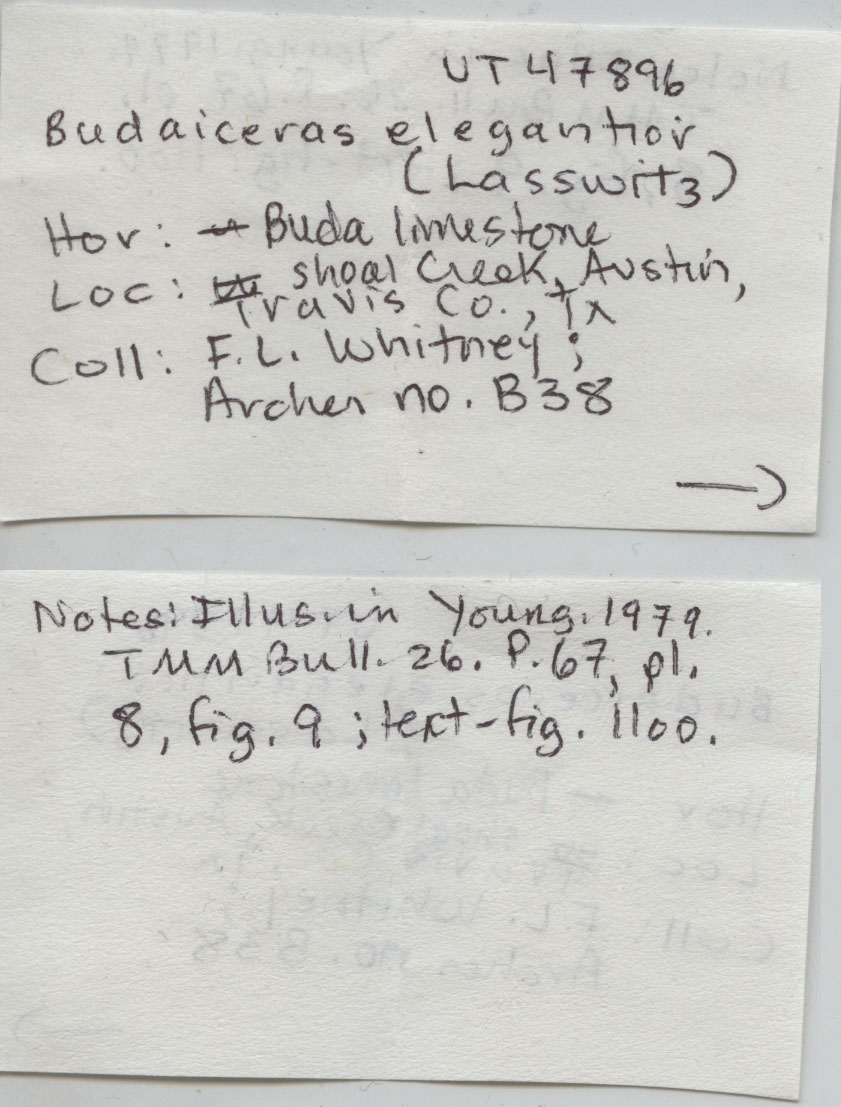 UT 47896
Budaiceras elegantior
(Lasswitz)
Hor: Buda limestone
Loc: Shoal Creek, Austin,
Travis Co., Tx
Coll: F.L. Whitney;
Archer no. B38
→
Notes: Illus. in Young. 1979.
TMM Bull. 26. P. 67, pl.
8, fig. 9; text-fig. 1100.